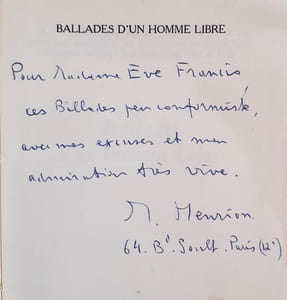 BALLADES D'UN HOMME LIBRE
Pour Madame Eve Francis
ces Ballades peu conformistes,
avec mes excuses et mon
admiration très vive.
M. Henrion
64. Bd. Soult. Paris (12e)